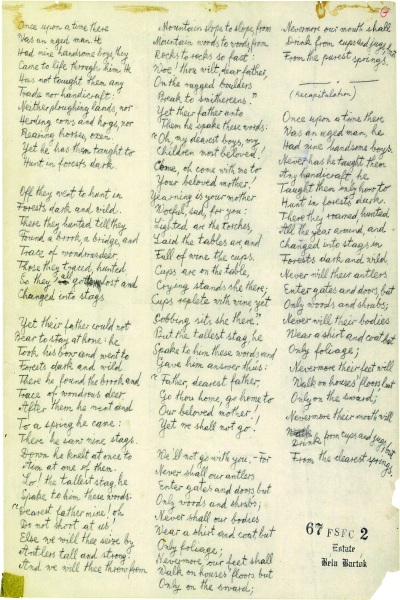 Once upon a time there
Was an aged man. He
Had nine handsome boys, they
Came to life through him. He
Has not taught them any
Trade nor handicraft.
Neither ploughing lands, nor
Herding cows and hogs, nor
Rearing horse, oxen.
Yet he has them taught to
Hunt in forests dark.
Off they went to hunt in
Forests dark and wild.
There they hunted till they
Found a brook, a bridge, and
Trace of wondrous deer.
Those they traced, hunted.
So they all got lost and
Changed into stags.
Yet their father could not
Bear to stay at home: he
Took his bow and went to
Forests dark and wild.
There he found the brook and
Trace of wondrous deer.
After them he went and
To a spring he came:
There he saw nine stags.
Down he knelt at once to
Aim at one of them.
Lo! the tallest stag, he
Spake to him these words:
"Dearest father mine! oh
Do not shoot at us!
Else we will thee seize by
Antlers tall and strong.
And we will thee throw from
Mountain slops to slops, from
Mountain woods to woods, from
Rocks to rocks so fast:
Woe! thou wilt, dear father,
On the rugged boulders
Break to smithereens."
Yet their father unto
Them he spake these words:
"Oh, my dearest boys, my
Children most beloved!
Come, oh come with me to
Your beloved mother!
Yearning is your mother
Woeful, sad, for you:
Lighted are the torches,
Laid the tables are, and
Full of wine the cups.
Cups are on the table,
Crying stands she there;
Cups replete with wine yet
Sobbing sits she there."
But the tallest stag, he
Spake to him these words and
Gave him answer thus:
"Father, dearest father,
Go thou home, go home to
Our beloved mother!
Yet we shall not go!
We'll not go with you, – For
Never shall our antlers
Enter gates and doors but
Only woods and shrubs;
Never shall our bodies
Wear a shirt and coat but
Only foliage;
Nevermore our feet shall
Walk on houses' floors but
Only on the sward;
Nevermore our mouth shall
Drink from cups and jugs, but
From the purest springs.
(Recapitulation)
Once upon a time there
Was an aged man, he
Had nine handsome boys.
Never has he taught them
Any handicraft, he
Taught them only how to
Hunt in forests dark.
There they roamed, hunted
All the year around, and
Changed into stags in
Forests dark and wild.
Never will their antlers
Enter gates and doors, but
Only woods and shrubs;
Never will their bodies
Wear a shirt and coat but
Only foliage;
Nevermore their feet will
Walk on houses' floors but
Only on the sward;
Nevermore their mouth will
Drink from cups and jugs, but
From the clearest springs.
67 FSFC 2
Estate
Bela Bartók